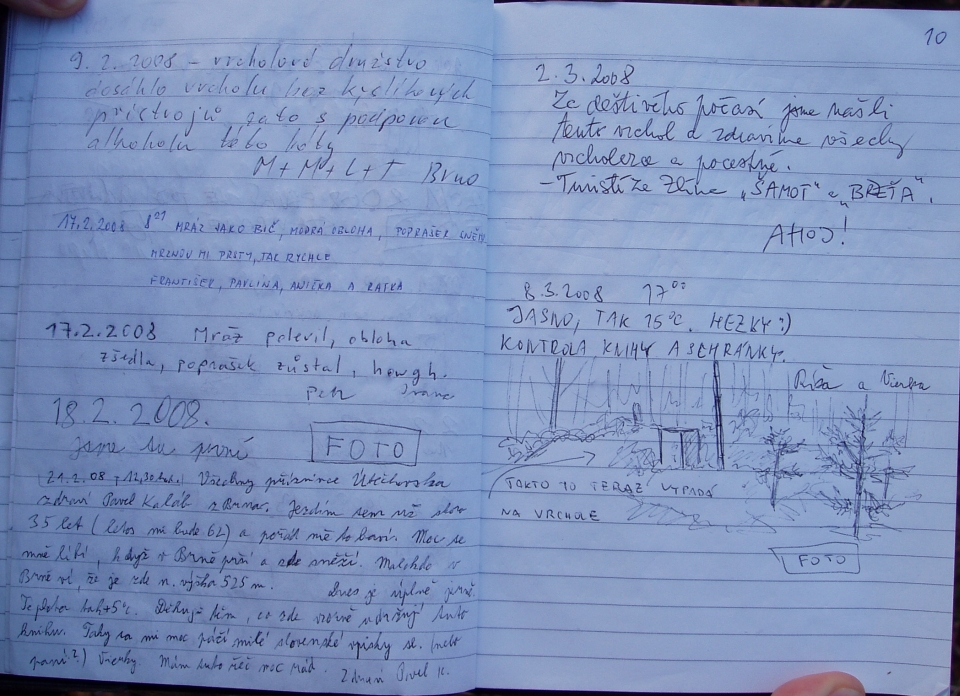 9. 2. 2008 – vrcholové družstvo
dosáhlo vrcholu bez kyslíkových
přístrojů, zato s podporou
alkoholu této lóty
M + M + L + T Brno
17.2.2008 8⁰¹ MRÁZ JAKO BIČ, MODRÁ OBLOHA, POPRAŠEK SNĚHU
MRZNOU MI PRSTY, TAK RYCHLE
FRANTIŠEK, PAVLÍNA, ANIČKA A KATKA
17.2.2008 Mráz polevil, obloha
zšedla, poprašek zůstal, howgh.
Petr Ivana
18. 2. 2008.
jsme tu první
FOTO
21.2.08 - 12,30 hod. Všechny příznivce Útěchovska
zdraví Pavel Kaláb z Brna. Jezdím sem už skoro
35 let (letos mi bude 62) a pořád mě to baví. Moc se
mně líbí, když v Brně prší a zde sněží. Málokdo v
Brně ví, že je zde n. výška 525 m. Dnes je úplně jasně.
Teplota tak +5°C. Děkuji těm, co zde vzorně udržují tuto
knihu. Taky sa mi moc páčí milé slovenské vpisky sl. (nebo
paní?) Vierky. Mám tuto řeč moc rád. Zdraví Pavel K.
10
2.3.2008
Za deštivého počasí jsme našli
tento vrchol a zdravíme všechny
vrcholerce a pocestné.
– Turisté ze Zlína „ŠAMOT“ a „BREŤA“.
AHOJ!
8.3.2008 17⁰⁰
JASNO, TAK 15°C. HEZKY :)
KONTROLA KNIHY A SCHRÁNKY.
Ríša a Vierka
TAKTO TO TERAZ VYPADÁ
NA VRCHOLE
FOTO